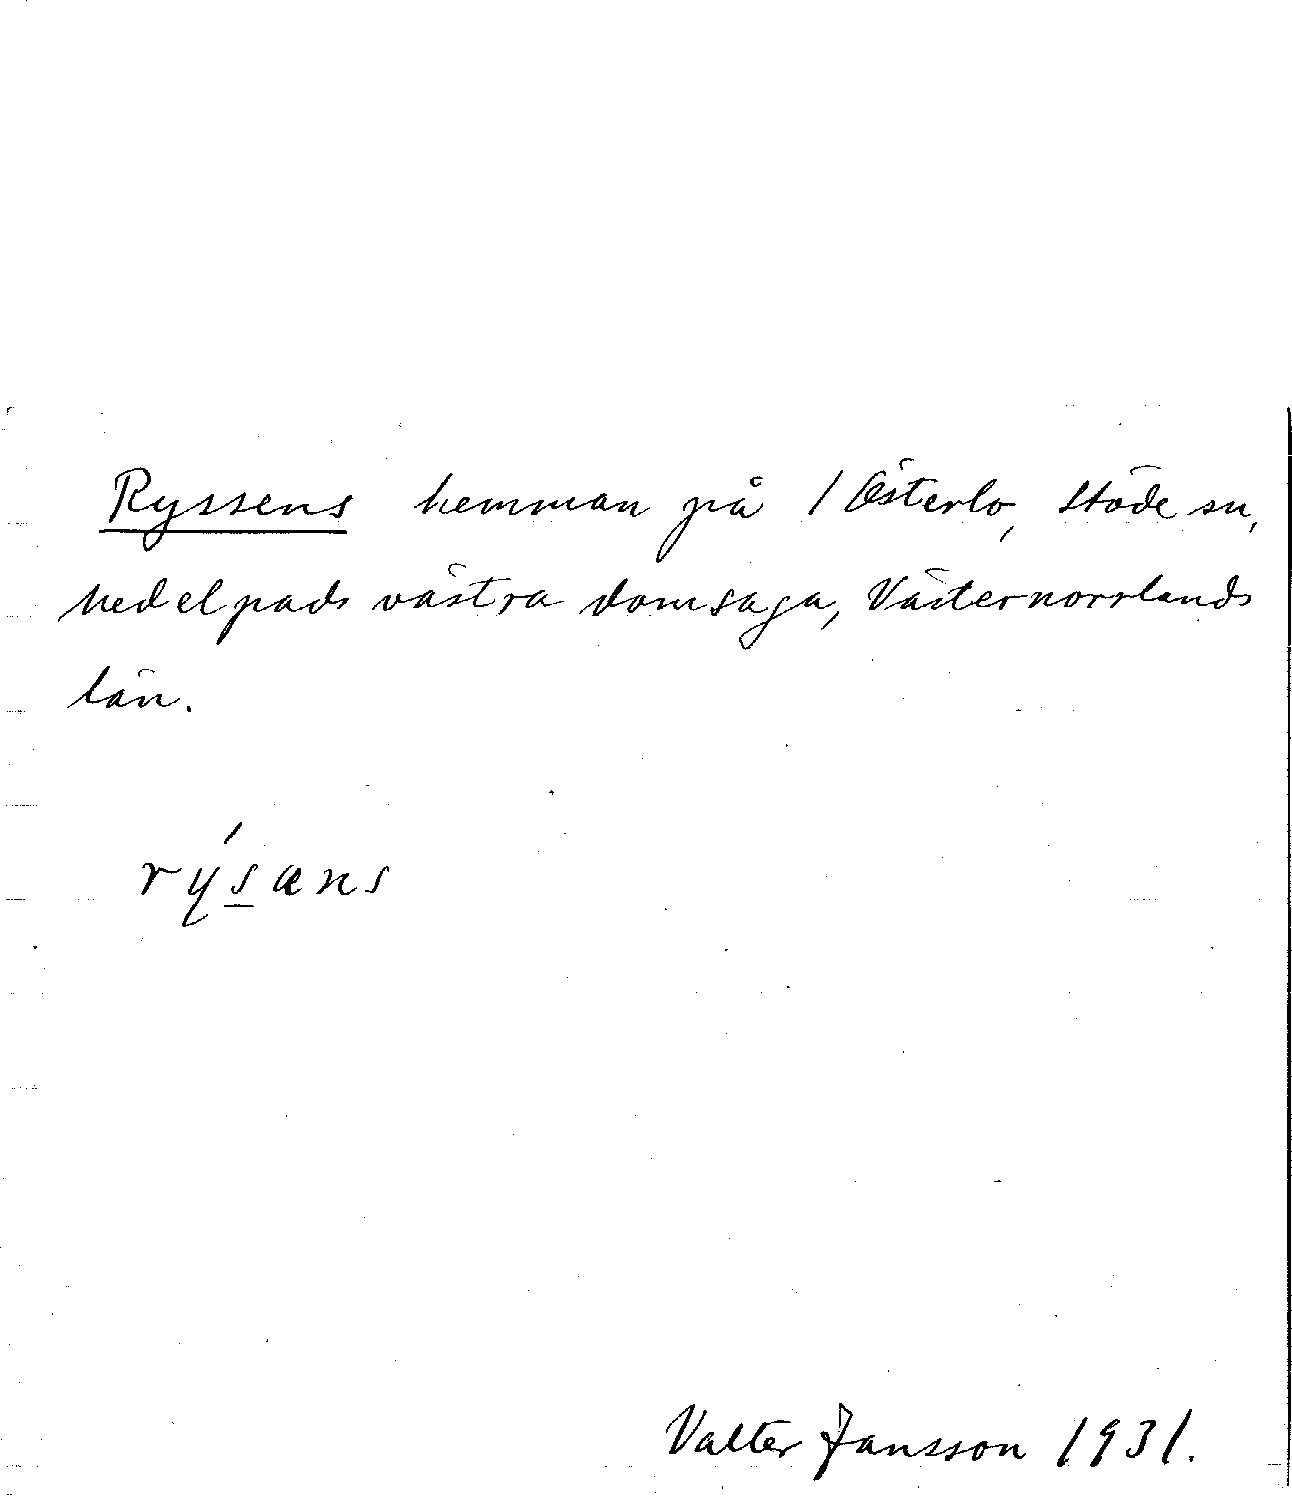 Ryssens hemman på 1 Österlo, Stöde sn,
Medelpads västra domsaga, Västernorrlands
län.
rýs̲æns
Valter Jansson 1931.